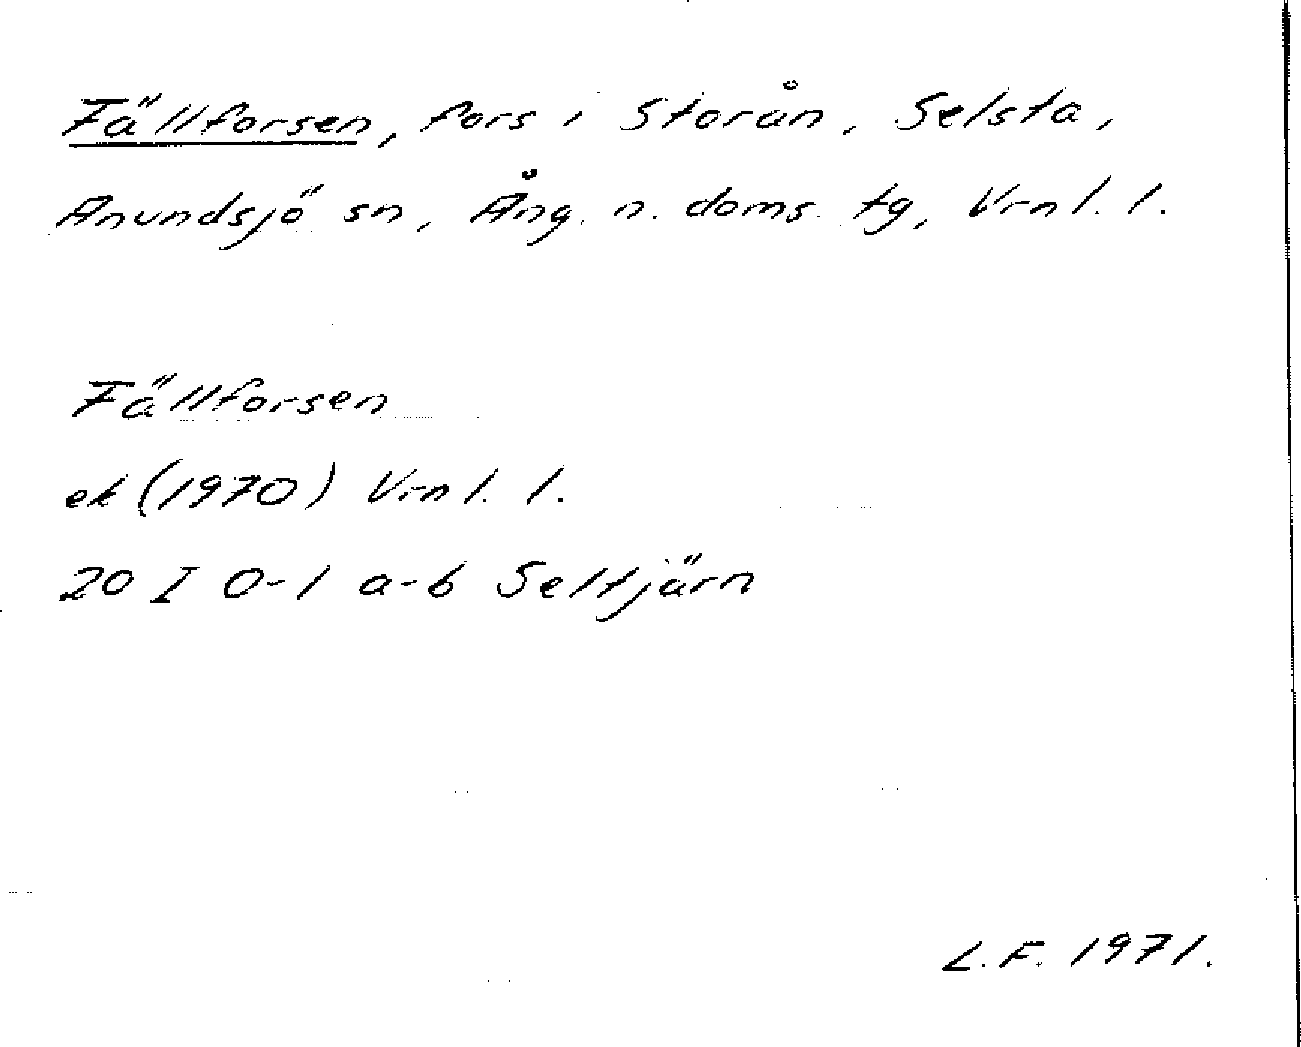 Fällforsen, fors i Storån, Selsta,
Anundsjö sn, Ång. n. doms. tg, Vrnl. l.
Fällforsen
ek (1970) Vrnl. l.
20 I 0-1 a-b Seltjärn
L.F. 1971.